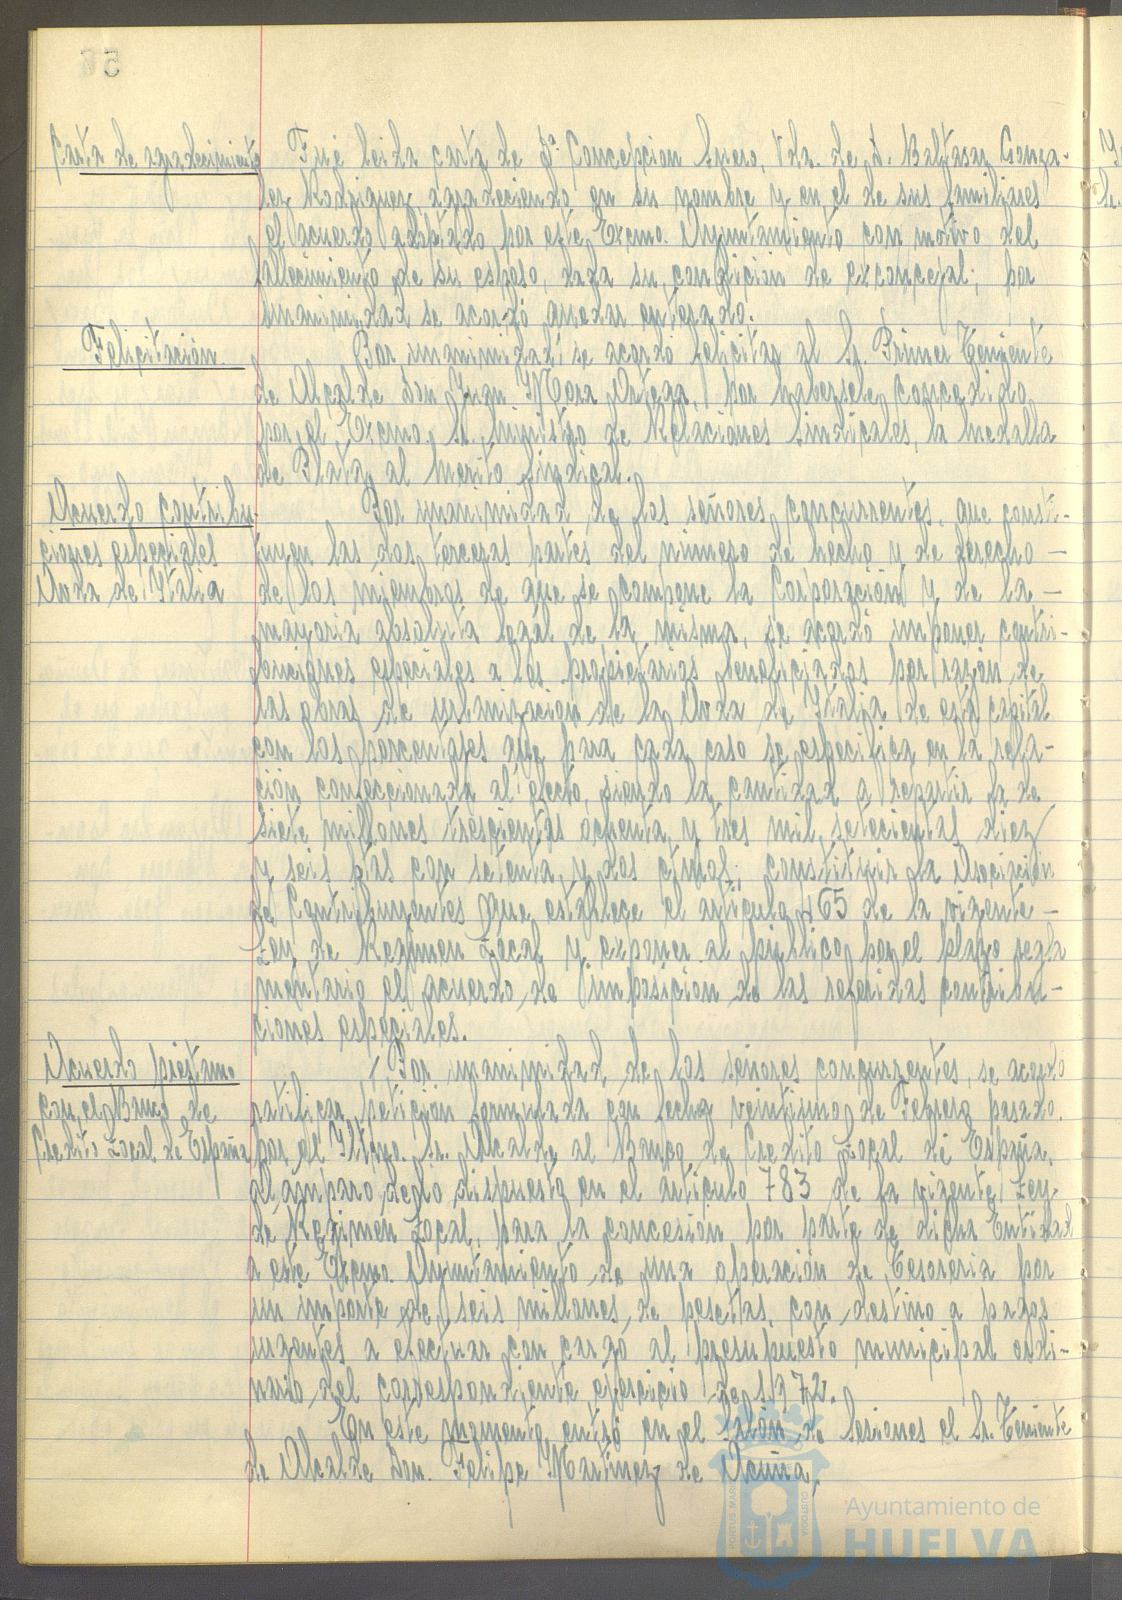 Carta de agradecimiento
Fué leida carta de Dª. Concepcion Suero, Vda. de D. Baltasar Gonza-
lez Rodriguez agradeciendo en su nombre y en el de sus familiares
el acuerdo adoptado por este Excmo. Ayuntamiento con motivo del
fallecimiento de su esposo, dada su condicion de exconcejal; por
unanimidad se acordó quedar enterado.
Felicitación.
Por unanimidad se acordó felicitar al Sr. Primer Teniente
de Alcalde Don Juan Mora Ortega, por habersele concedido
por el Excmo. Sr. Ministro de Relaciones Sindicales, la Medalla
de Plata al Merito Sindical.
Acuerdo contribu-
ciones especiales
Avda de Italia
Por unanimidad de los señores concurrentes, que consti-
tuyen las dos terceras partes del número de hecho y de derecho —
de los miembros de que se compone la Corporación y de la —
mayoria absoluta legal de la misma, se acordó imponer contri-
buciones especiales a los propietarios beneficiados por razón de
las obras de urbanización de la Avda de Italia de esta capital
con los porcentajes que para cada caso se especifica en la rela-
ción confeccionada al efecto, siendo la cantidad a repartir la de
siete millones trescientas ochenta y tres mil setecientas diez
y seis ptas con setenta y dos ctmos; constituir la Asociación
de Contribuyentes que establece el articulo 465 de la vigente —
Ley de Regimen Local y exponer al publico por el plazo regla
mentario el acuerdo de imposición de las referidas contribu-
ciones especiales.
Acuerdo préstamo
con el Banco de
Credito Local de España
Por unanimidad de los señores concurrentes, se acordó
ratificar petición formulada con fecha veintiuno de Febrero pasado.
por el Iltmo. Sr. Alcalde al Banco de Credito Local de España,
al amparo de lo dispuesto en el articulo 783 de la vigente Ley
de Regimen Local, para la concesión por parte de dicha Entidad
a este Excmo. Ayuntamiento de una operación de Tesoreria por
un importe de seis millones de pesetas, con destino a pagos
urgentes a efectuar con cargo al presupuesto municipal ordi-
nario del correspondiente ejercicio de 1972.
En este momento entró en el Salón de Sesiones el Sr. Teniente
de Alcalde Don Felipe Martinez de Acuña.
PORTUS MARIS
CUSTODIA
Ayuntamiento de
HUELVA